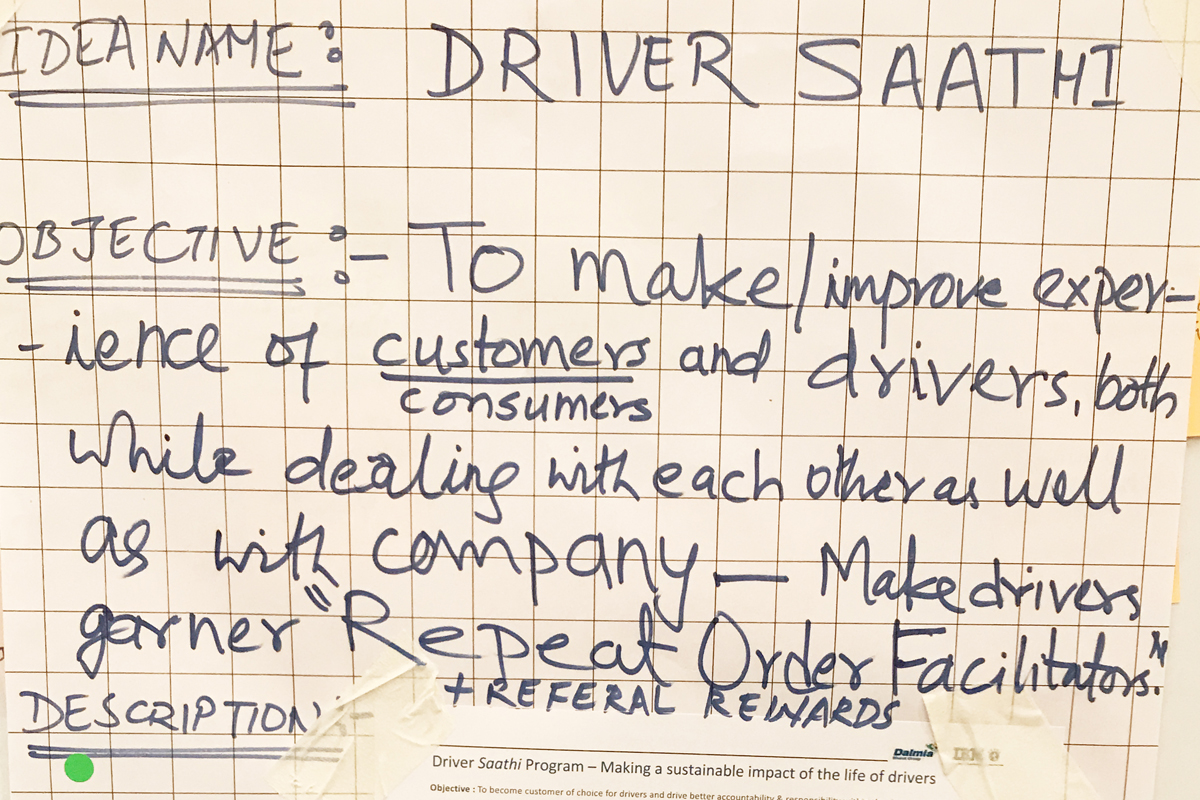 IDEA NAME : DRIVER SAATHI
OBJECTIVE :- To make/improve exper-
-ience of customers and drivers, both
consumers
while dealing with each other as well
as with company — Make drivers
garner "Repeat Order Facilitators."
+ REFERAL REWARDS
DESCRIPTION
Dalmia
Driver Saathi Program – Making a sustainable impact of the life of drivers
Objective : To become customer of choice for drivers and drive better accountability &